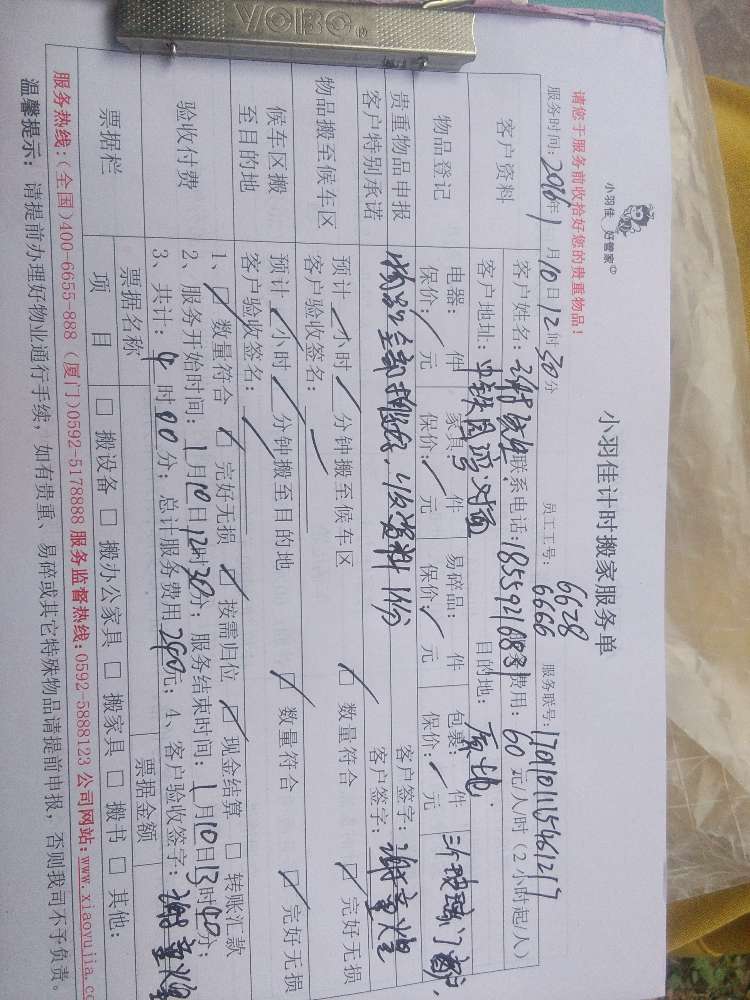 YOBO
小羽佳 好管家
小羽佳计时搬家服务单
请您于服务前收拾好您的贵重物品！
员工工号：6628 6666
服务时间：2016年1月10日12时30分
服务联号：
客户资料
客户姓名：谢 联系电话：
费用：60元/人/时（2小时起/人）
客户地址：中铁 对面
目的地：原地
物品登记
电器： 件 家具： 件 易碎品： 件 包裹： 件
保价： 元 保价： 元 保价： 元 保价： 元
玻璃门
贵重物品申报
客户特别承诺
物品全部 收资料1份
客户签字：
客户签字：谢
物品搬至候车区
预计 小时 分钟搬至候车区 数量符合 完好无损
客户验收签名：
候车区搬至目的地
预计 小时 分钟搬至目的地 数量符合 完好无损
客户验收签名：
验收付费
1、 数量符合 完好无损 按需归位 现金结算 □ 转账汇款
2、服务开始时间：1月10日12时30分；服务结束时间：1月10日13时 分；
3、共计： 时00分；总计服务费用240元；4、客户验收签字：谢
票据栏
票据名称 票据金额
项目 □ 搬设备 □ 搬办公家具 □ 搬家具 □ 搬书 □ 其他：
服务热线：(全国)400-6655-888 (厦门)0592-5178888 服务监督热线：0592-5888123 公司网站：www.xiaoyujia.co
温馨提示： 请提前办理好物业通行手续，如有贵重、易碎或其它特殊物品请提前申报，否则我司不予负责。